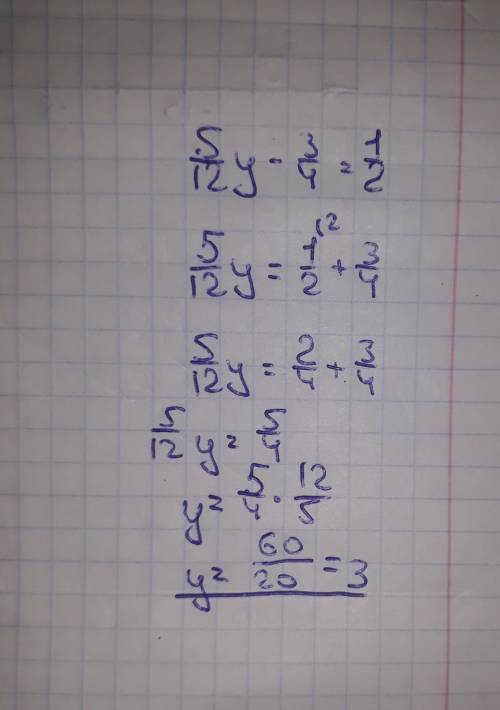 5/12 y - 3/4 = 1/2
5/12 y = 1/2 \2 + 3/4
5/12 y = 2/4 + 3/4
5/12 y = 5/4
y = 5/4 · 12/5
y = 60/20 = 3